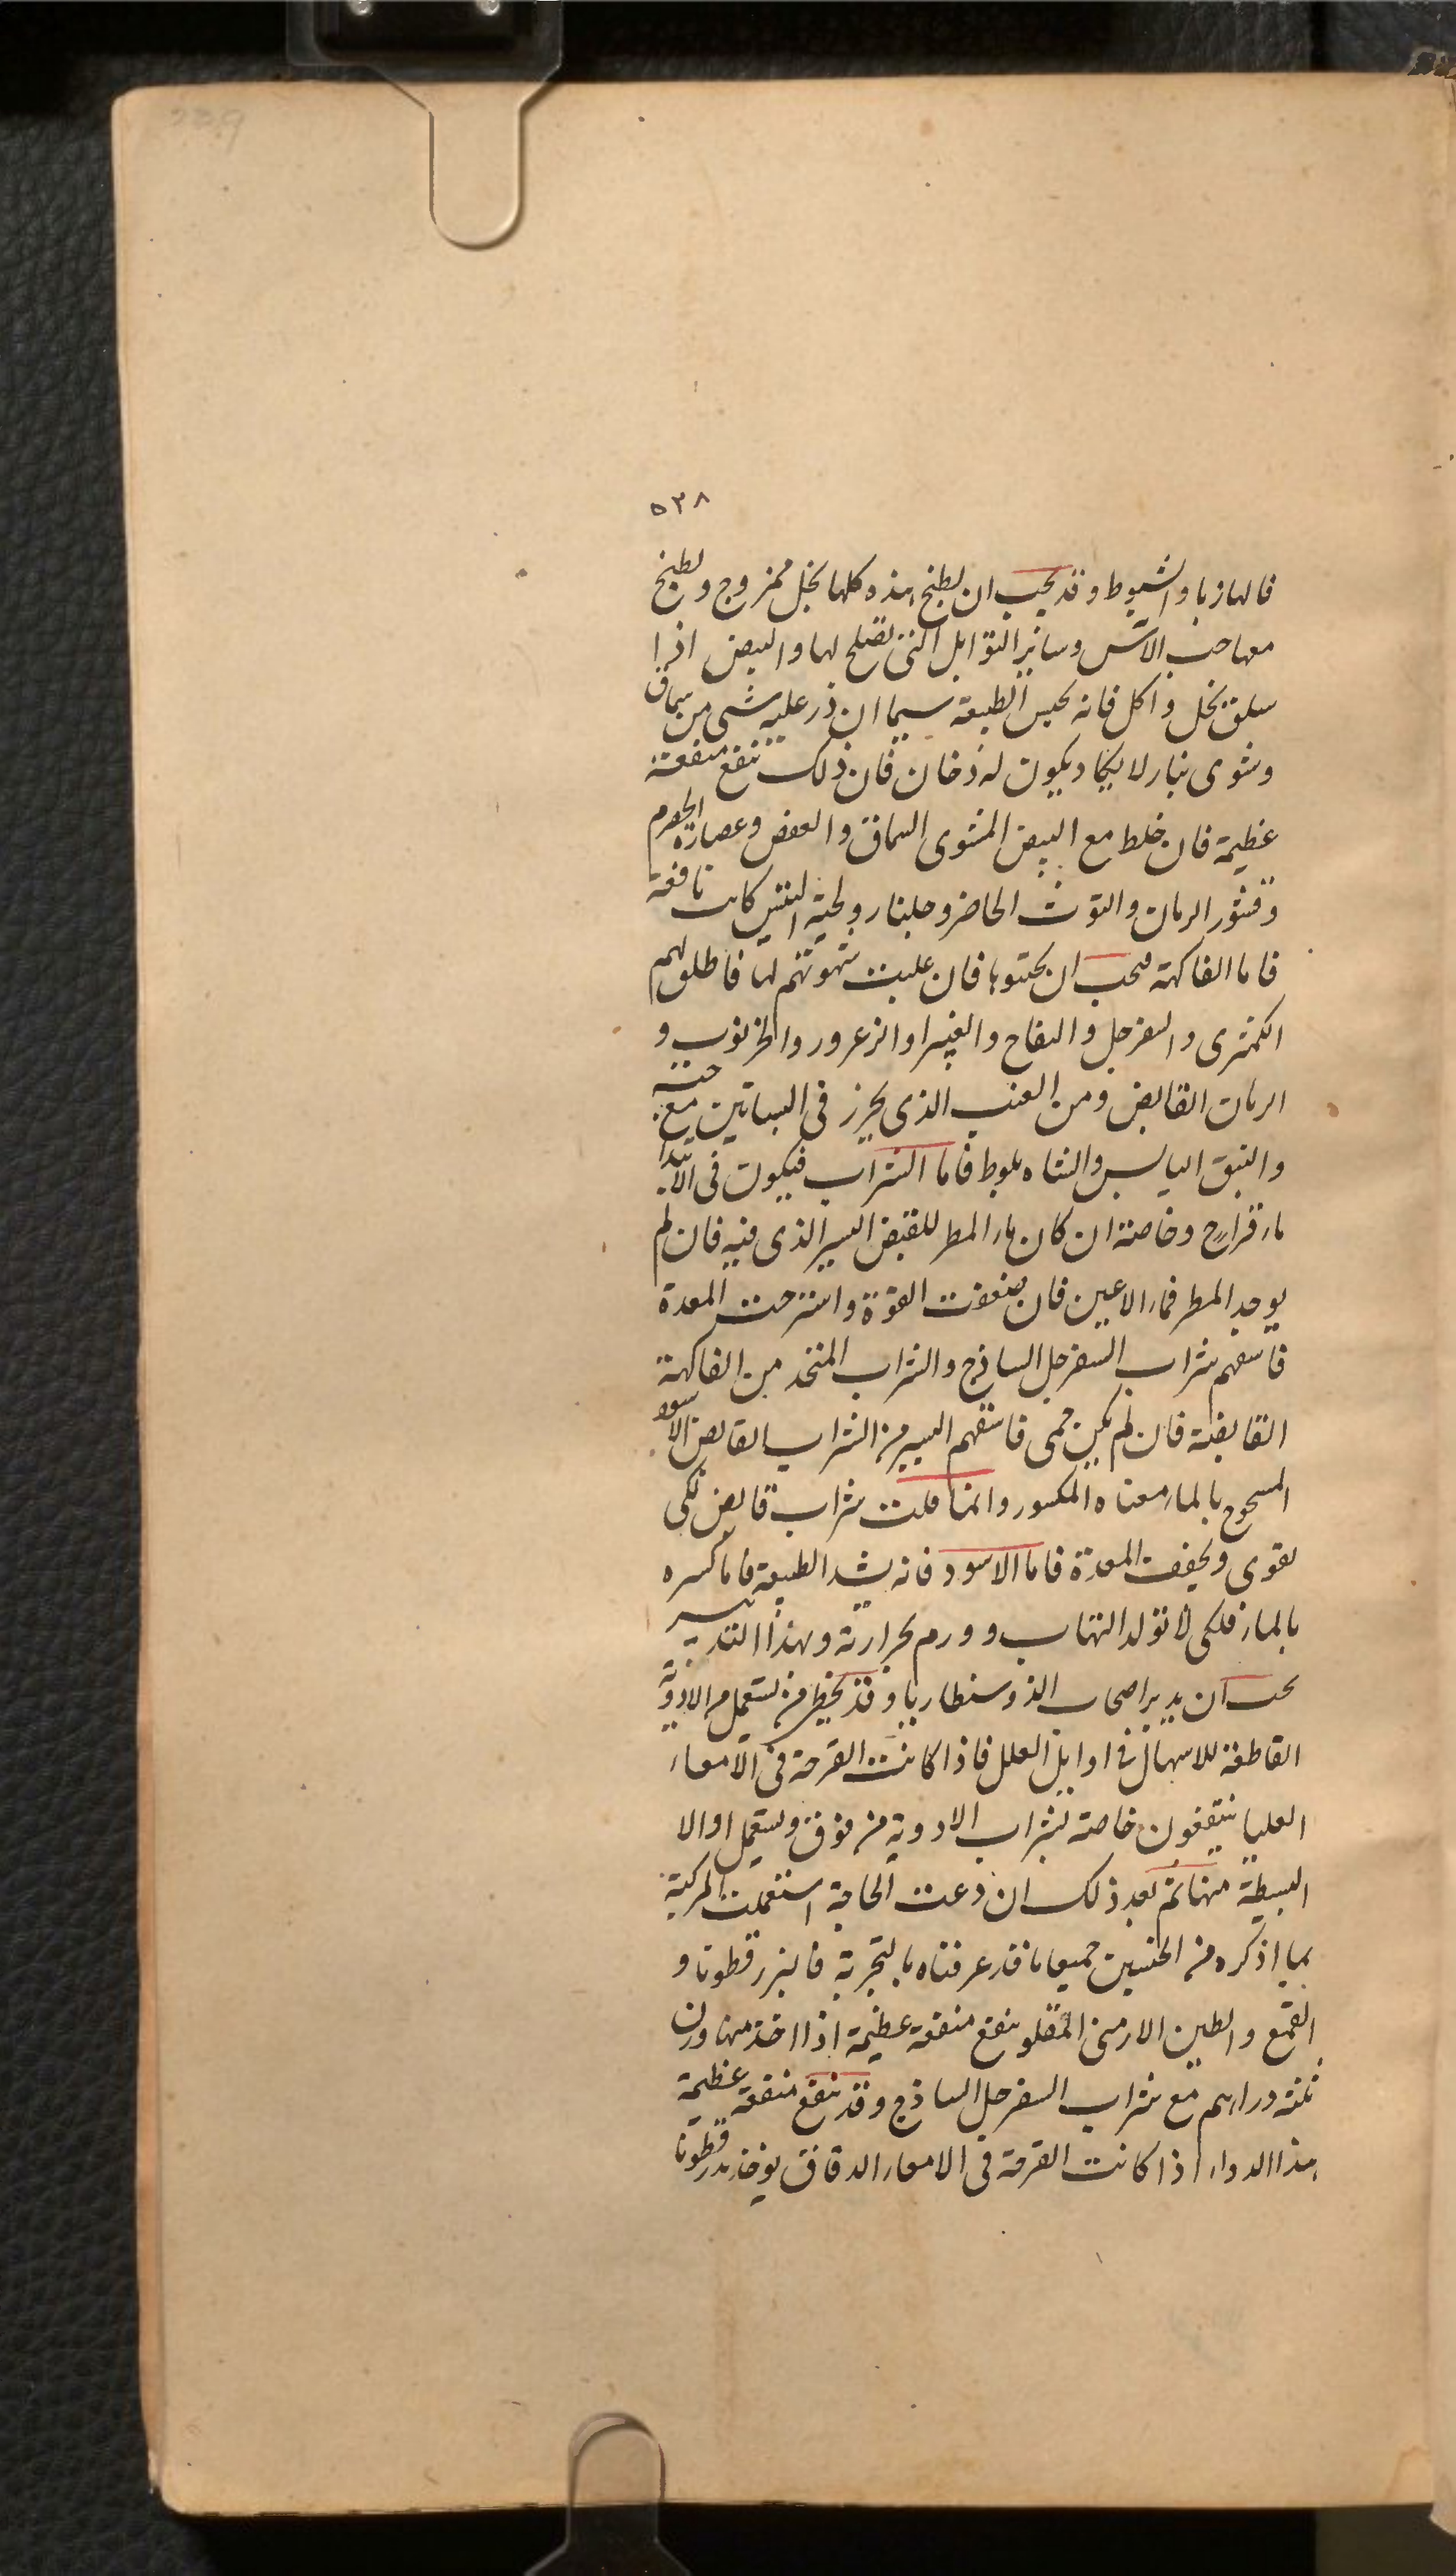 ٥٢٨
فالهازبا والشبوط وقد يجب ان يطبخ هذه كلها بخل ممزوج ويطبخ
معها حب الآس وسائر التوابل التي تصلح لها والبيض اذا
سلق بخل واكل فانه يحبس الطبيعة سيما ان ذر عليه شى من سماق
وشوى بنار لا يكاد يكون له دخان فان ذلك ينفع منفعة
عظيمة فان خلط مع البيض المشوى السماق والعفص وعصارة الحصرم
وقشور الرمان والتوث الحامض وجلنار ولحية التيس كانت نافعة
فاما الفاكهة فيجب ان يجتنبوها فان غلبت شهوتهم لها فاطلق لهم
الكمثرى والسفرجل والتفاح والغبيرا والزعرور والخرنوب و
الرمان القابض ومن العنب الذى يحرز فى البساتين مع حبه
والنبق اليابس والشاه بلوط فاما الشراب فيكون فى الابتدا
ماء قراح وخاصة ان كان ماء المطر للقبض اليسير الذى فيه فان لم
يوجد المطر فماء الاعين فان ضعفت القوة واسترخت المعدة
فاسقهم شراب السفرجل الساذج والشراب المتخذ من الفاكهة
القابضة فان لم يكن حمى فاسقهم اليسير من الشراب القابض الاسود
بالماء معناه المكسور وانما قلت شراب قابض لكى
يقوى ويجفف المعدة فاما الاسود فانه يشد الطبيعة فاما كسره
بالماء فلكى لا تولد التهاب وورم بحرارته وبهذا التدبير
يجب ان يدبر اصحاب الذوسنطاريا وقد يخطى من يستعمل الادوية
القاطعة للاسهال فى اوايل العلل فاذا كانت القرحة فى الامعاء
العليا ينتفعون خاصة بشراب الادوية من فوق ويستعمل اولا
البسيطة منها ثم بعد ذلك ان دعت الحاجة استعملت المركبة
بما اذكره من الجنسين جميعا ما قد عرفناه بالتجربة فالبزر قطونا و
الصمغ والطين الارمنى المقلو ينفع منفعة عظيمة اذا اخذ منها وزن
ثلثة دراهم مع شراب السفرجل الساذج وقد ينفع منفعة عظيمة
هذا الدواء اذا كانت القرحة فى الامعاء الدقاق يوخذ بزر قطونا